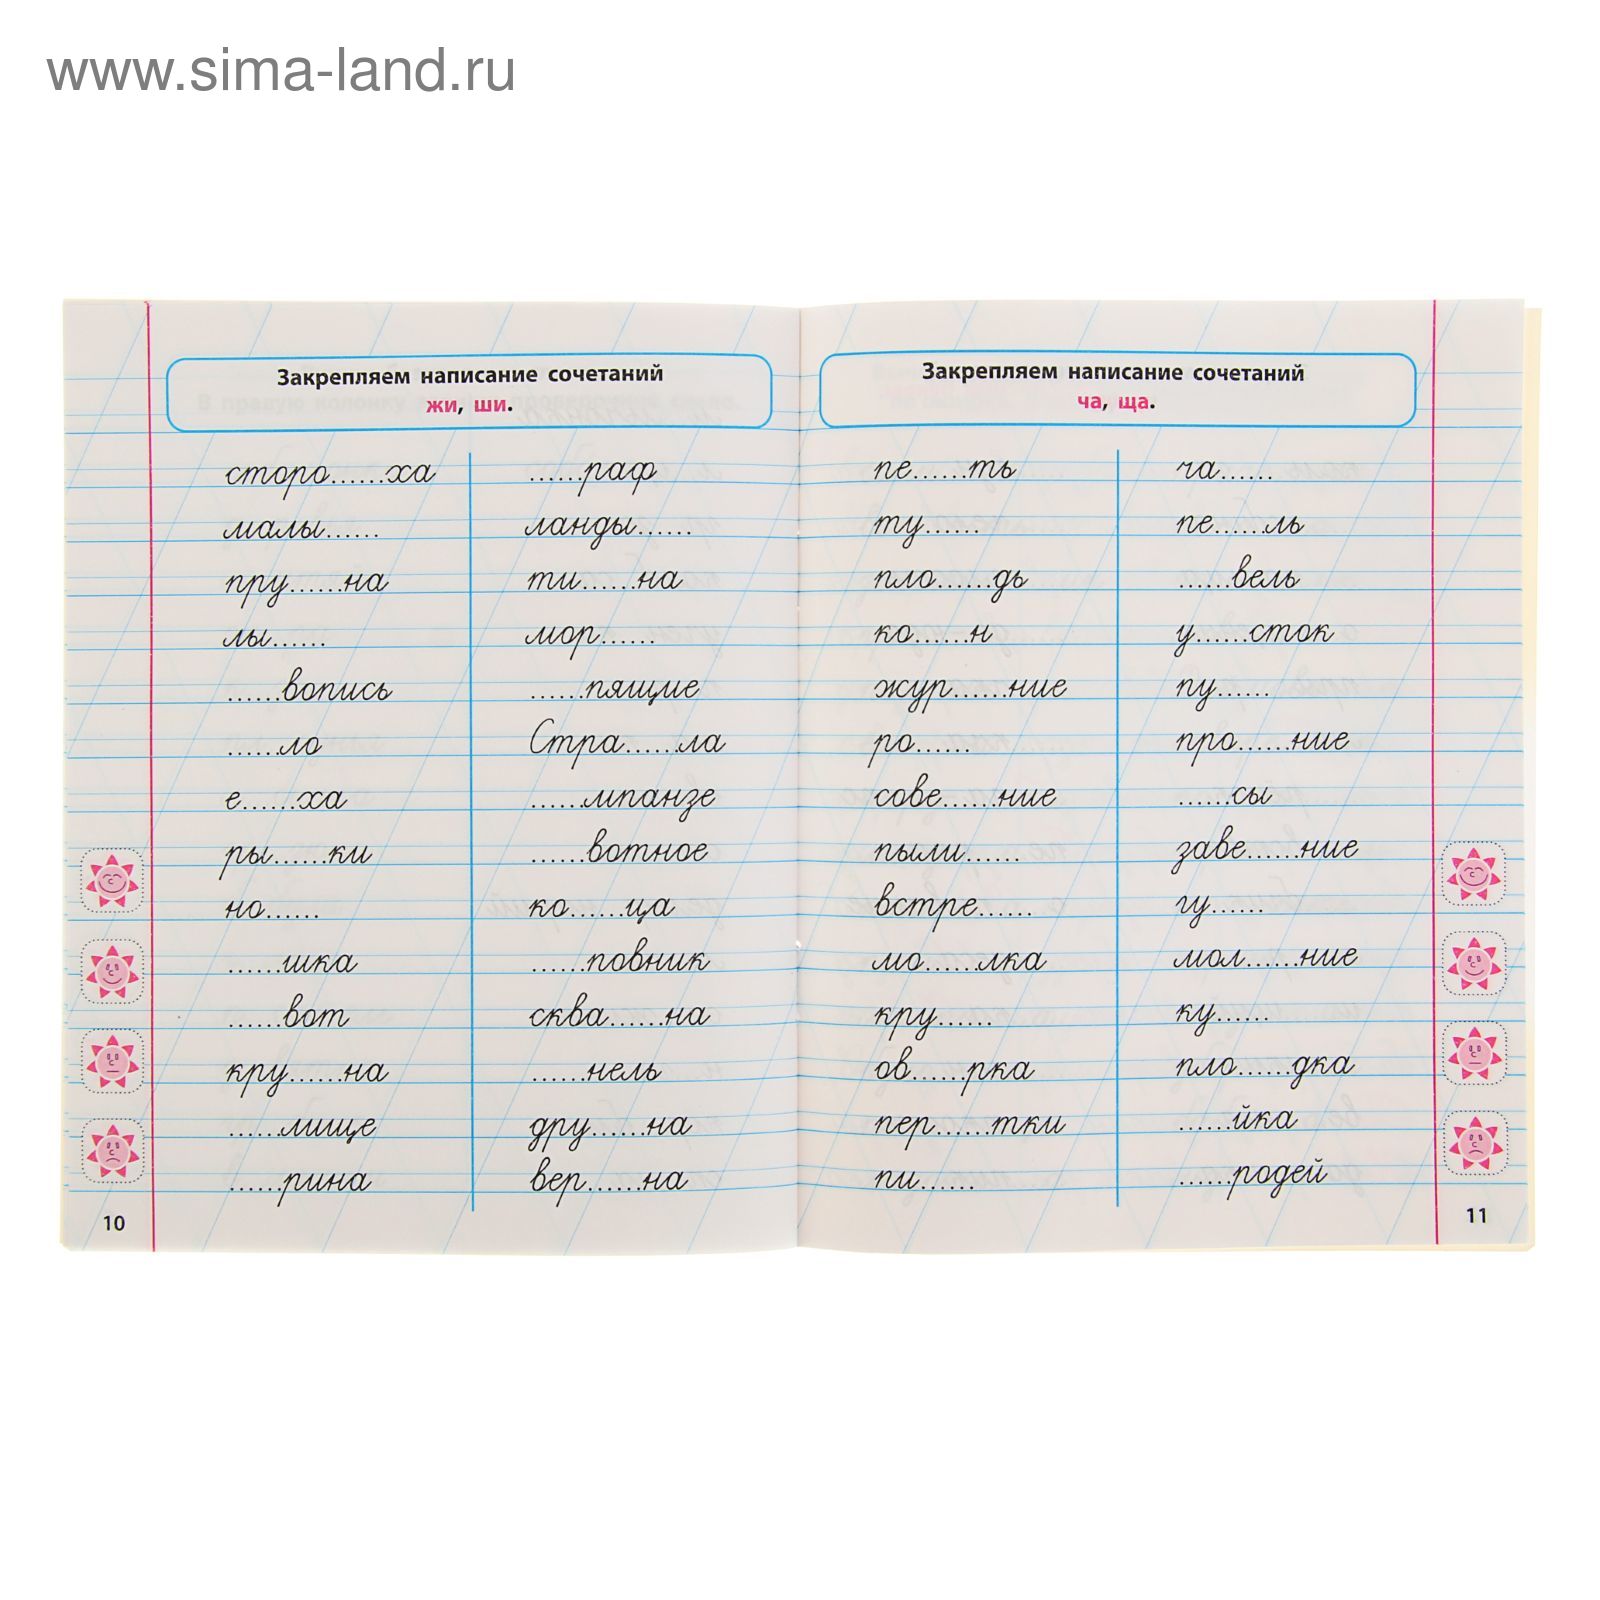 www.sima-land.ru
Закрепляем написание сочетаний
жи, ши.
сторо......ха
малы......
пру......на
лы......
......вопись
......ло
е......ха
ры......ки
но......
......шка
......вот
кру......на
......лище
......рина
......раф
ланды......
ти......на
морж......
......пящие
Стра......ла
......мпанзе
......вотное
ко......ца
......повник
сква......на
......нель
дру......на
вер......на
10
Закрепляем написание сочетаний
ча, ща.
пе......ть
ту......
пло......дь
ко......н
жур......ние
ро......
сове......ние
пыли......
встре......
мо......лка
кру......
ов......рка
пер......тки
пи......
ча......
пе......ль
......вель
у......сток
пу......
про......ние
......сы
заве......ние
гу......
мол......ние
ку......
пло......дка
......йка
......родей
11